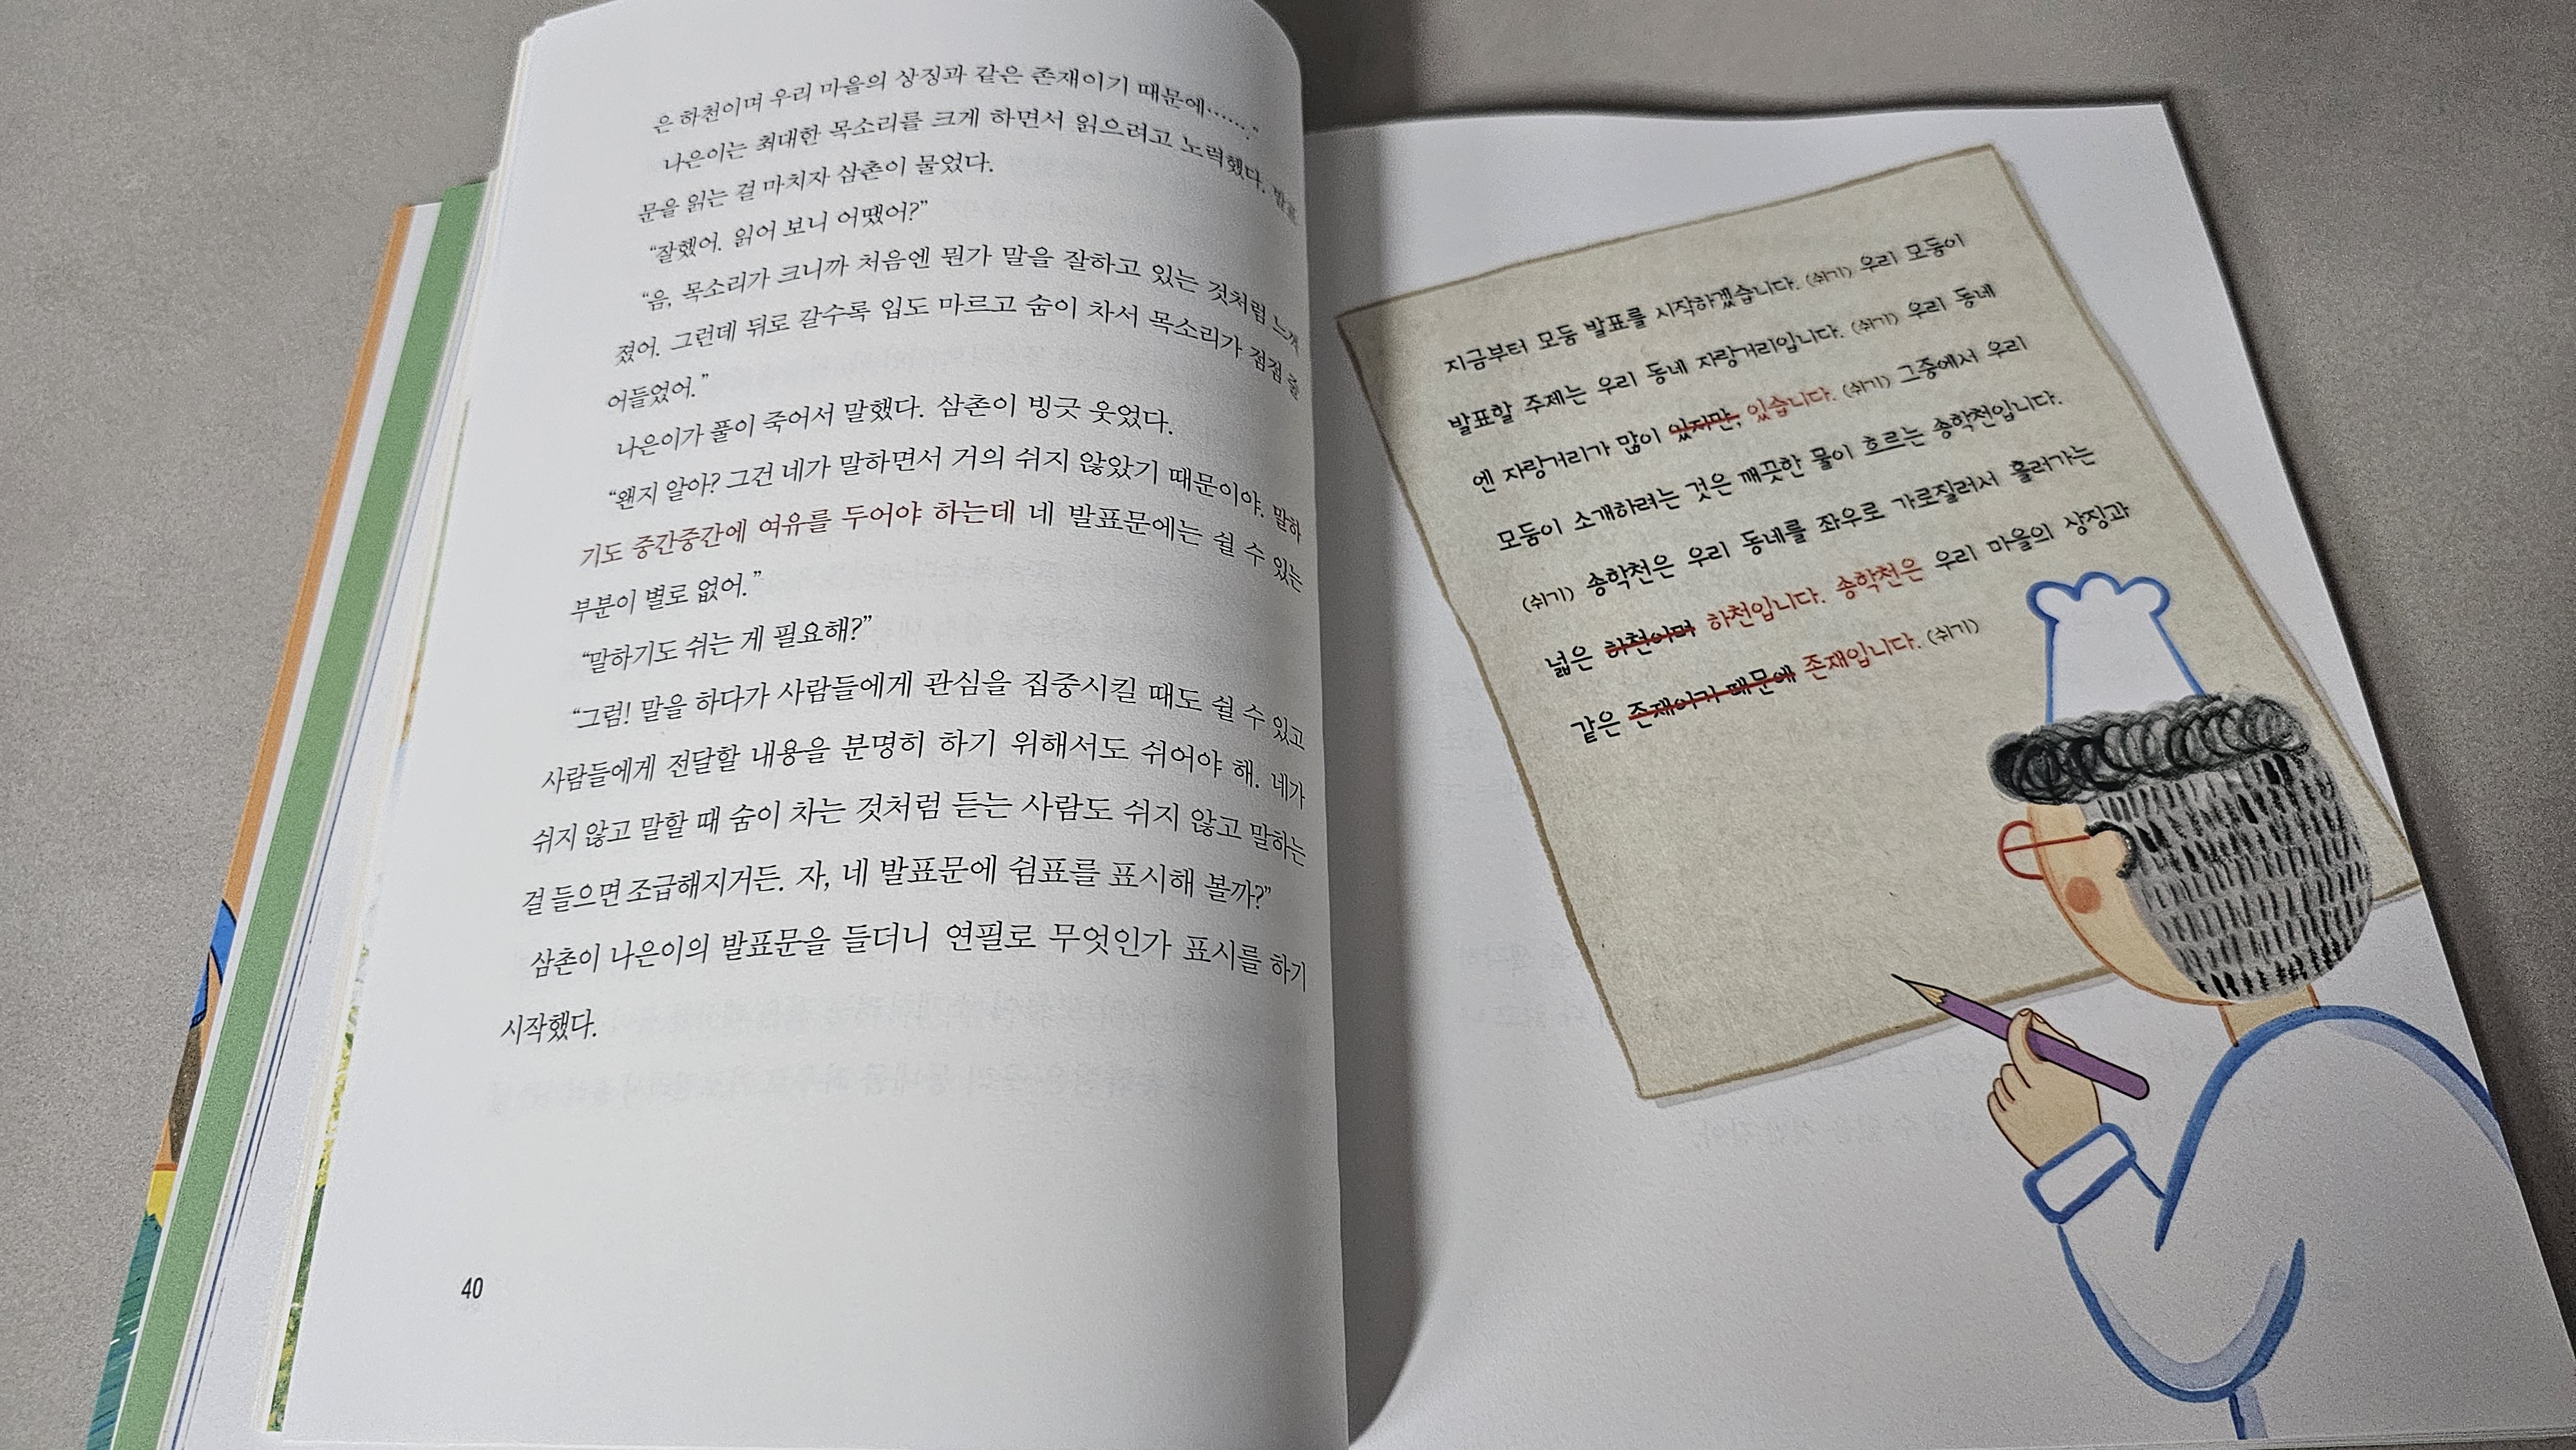 은 하천이며 우리 마을의 상징과 같은 존재이기 때문에……."
나은이는 최대한 목소리를 크게 하면서 읽으려고 노력했다. 발표
문을 읽는 걸 마치자 삼촌이 물었다.
"잘했어. 읽어 보니 어땠어?"
"음, 목소리가 크니까 처음엔 뭔가 말을 잘하고 있는 것처럼 느껴
졌어. 그런데 뒤로 갈수록 입도 마르고 숨이 차서 목소리가 점점 줄
어들었어."
나은이가 풀이 죽어서 말했다. 삼촌이 빙긋 웃었다.
"왠지 알아? 그건 네가 말하면서 거의 쉬지 않았기 때문이야. 말하
기도 중간중간에 여유를 두어야 하는데 네 발표문에는 쉴 수 있는
부분이 별로 없어."
"말하기도 쉬는 게 필요해?"
"그럼! 말을 하다가 사람들에게 관심을 집중시킬 때도 쉴 수 있고
사람들에게 전달할 내용을 분명히 하기 위해서도 쉬어야 해. 네가
쉬지 않고 말할 때 숨이 차는 것처럼 듣는 사람도 쉬지 않고 말하는
걸 들으면 조급해지거든. 자, 네 발표문에 쉼표를 표시해 볼까?"
삼촌이 나은이의 발표문을 들더니 연필로 무엇인가 표시를 하기
시작했다.
40
지금부터 모둠 발표를 시작하겠습니다. (쉬기) 우리 모둠이
발표할 주제는 우리 동네 자랑거리입니다. (쉬기) 우리 동네
엔 자랑거리가 많이 있지만, 있습니다. (쉬기) 그중에서 우리
모둠이 소개하려는 것은 깨끗한 물이 흐르는 송학천입니다.
(쉬기) 송학천은 우리 동네를 좌우로 가로질러서 흘러가는
넓은 하천이며 하천입니다. 송학천은 우리 마을의 상징과
같은 존재이기 때문에 존재입니다. (쉬기)